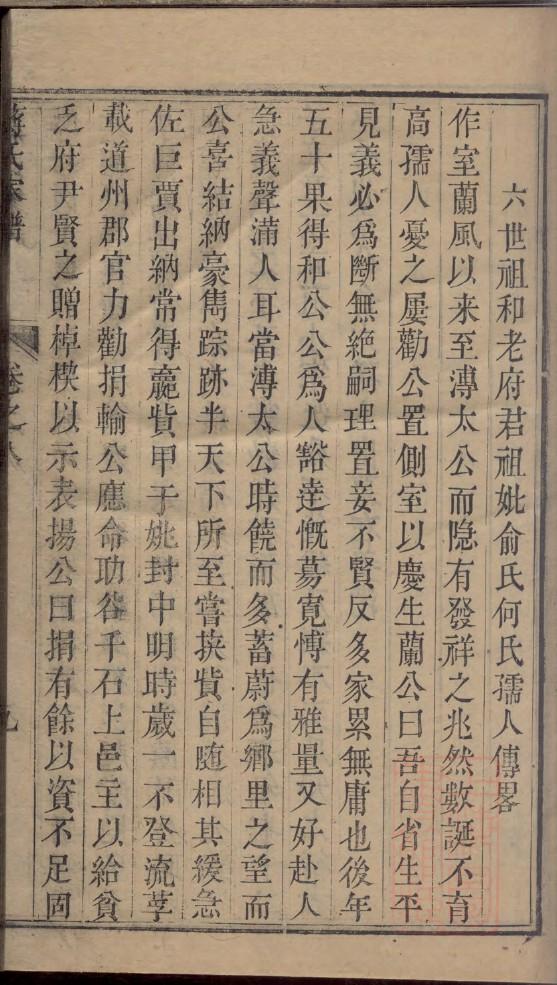 六世祖和老府君祖妣俞氏何氏孺人傳畧
作室蘭風以来至溥太公而隐有發祥之兆然數誕不育
高孺人憂之屢勸公置側室以慶生蘭公曰吾自省生平
見義必爲斷無絶嗣理置妾不賢反多家累無庸也後年
五十果得和公公爲人豁達慨募寛愽有雅量又好赴人
急義聲滿人耳當溥太公時饒而多蓄蔚爲鄉里之望而
公喜結納豪雋踪跡半天下所至嘗挟貲自随相其緩急
佐巨賈出納常得麄貲甲于姚封中明時歲一不登流莩
載道州郡官力勸捐輸公應命助谷千石上邑主以給貧
乏府尹賢之贈棹楔以示表揚公曰捐有餘以資不足固
氏家譜
卷之八
九